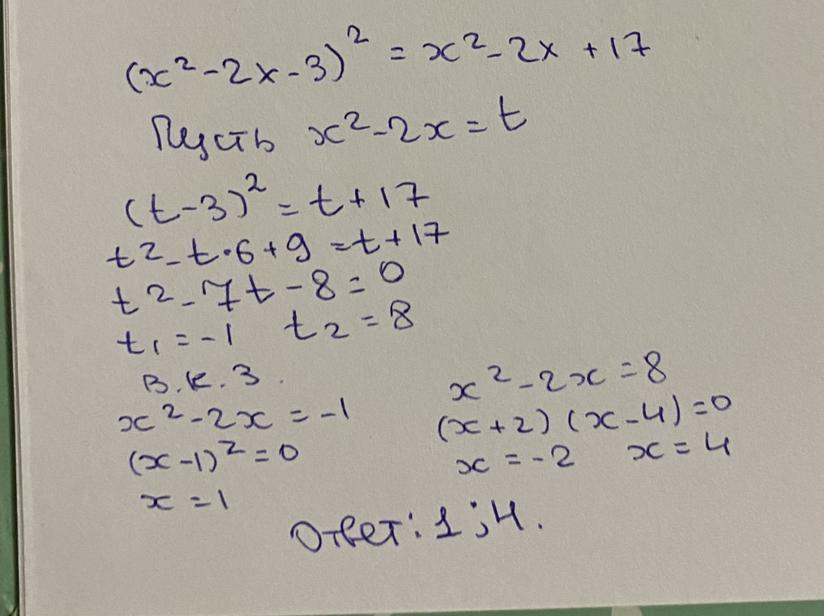 (x²-2x-3)² = x²-2x+17
Пусть x²-2x=t
(t-3)²=t+17
t²-t·6+9=t+17
t²-7t-8=0
t₁=-1 t₂=8
В.К.З.
x²-2x=-1
(x-1)²=0
x=1
x²-2x=8
(x+2)(x-4)=0
x=-2 x=4
Ответ: 1;4.